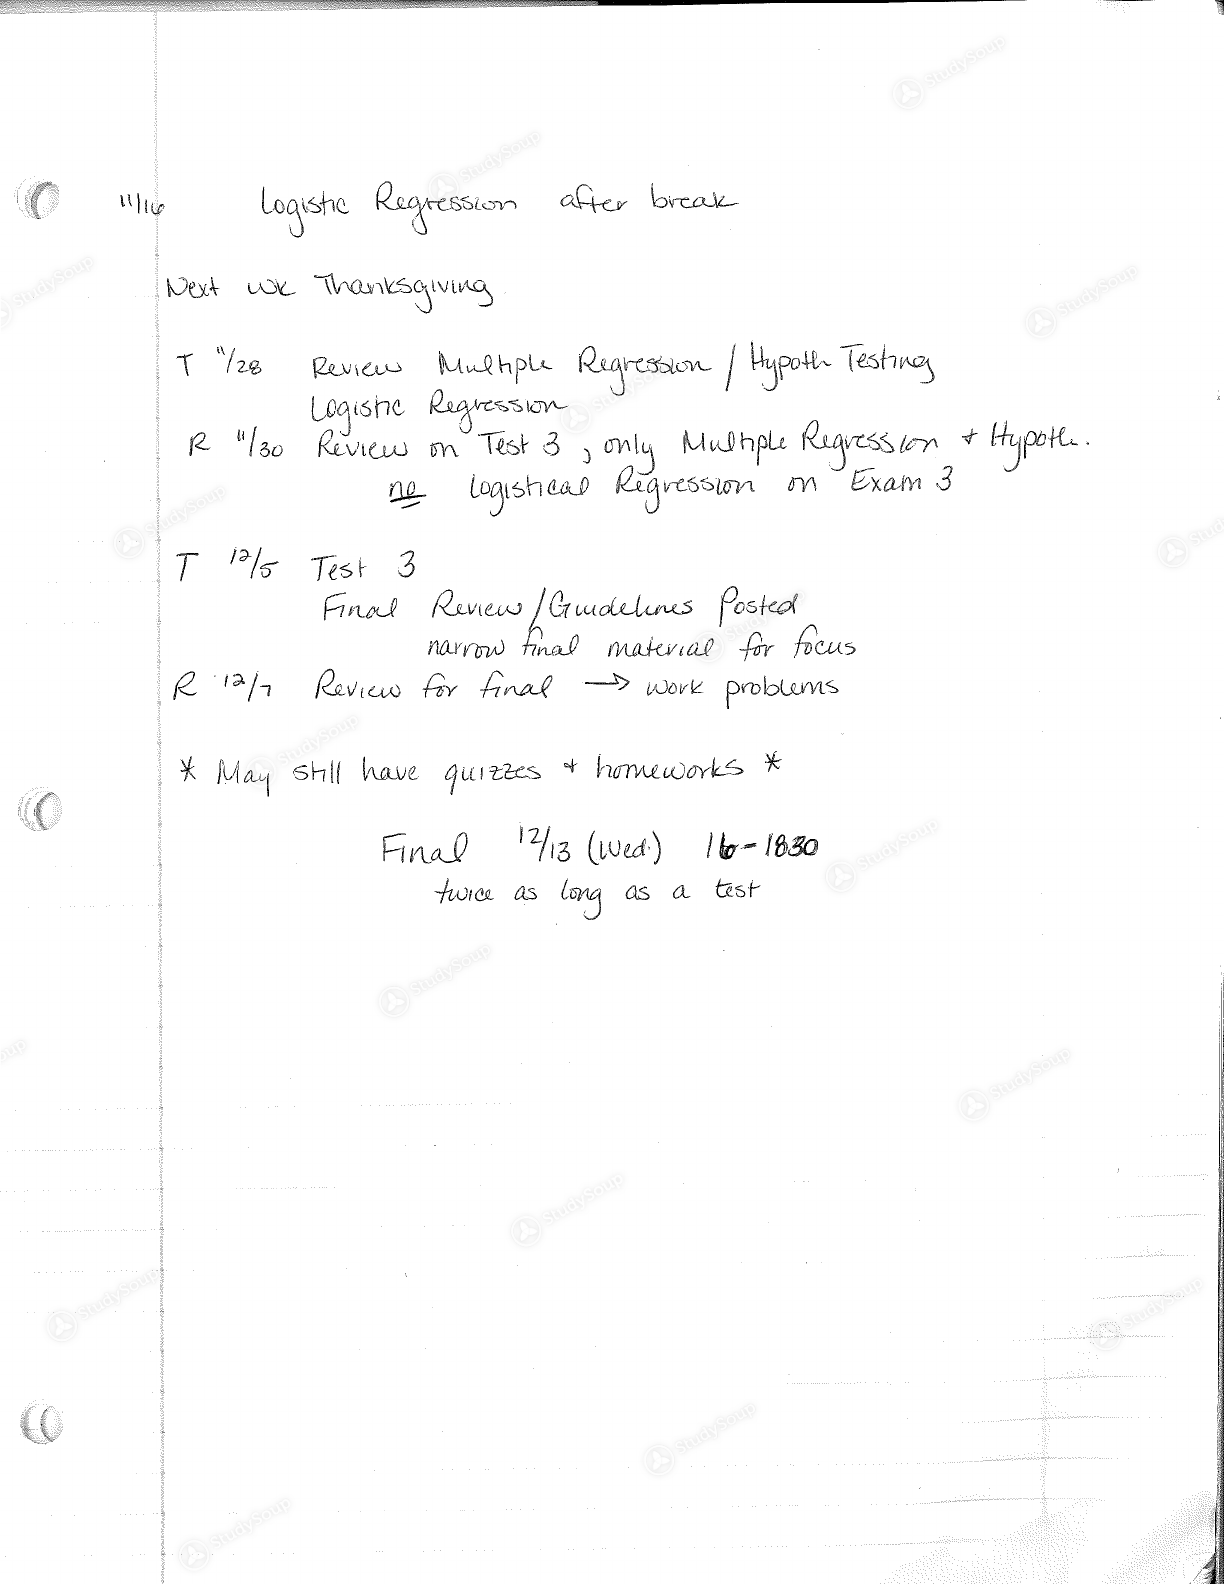 11/16 Logistic Regression after break
Next wk Thanksgiving
T 11/28 Review Multiple Regression / Hypoth Testing
Logistic Regression
R 11/30 Review on Test 3, only Multiple Regression + Hypoth.
no Logistical Regression on Exam 3
T 12/5 Test 3
Final Review/Guidelines Posted
narrow final material for focus
R 12/7 Review for final → work problems
* May still have quizzes + homeworks *
Final 12/13 (Wed.) 16-1830
twice as long as a test